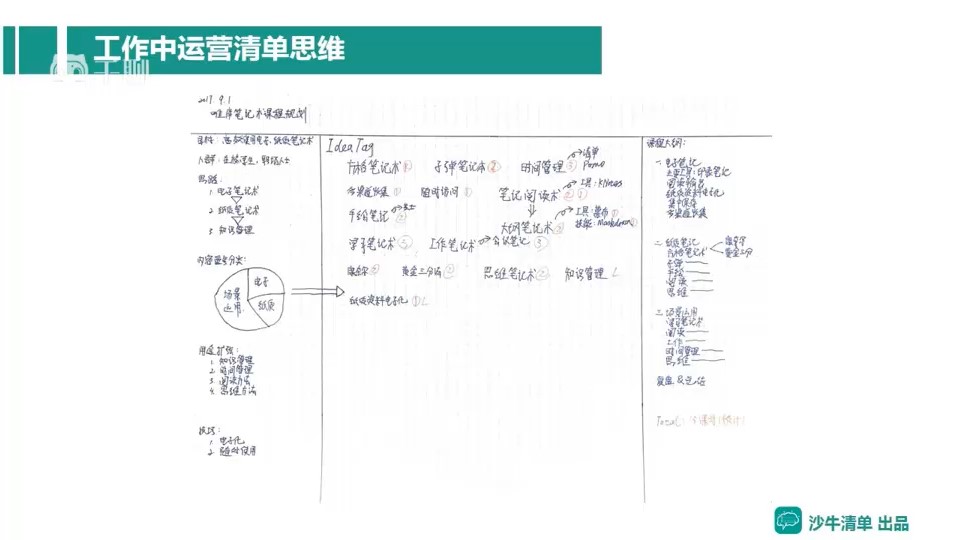 工作中运营清单思维
千聊
2017.9.1
的程序笔记术课程规划
目标：高效使用电子、纸质笔记术
人群：在校学生、职场人士
思路：
1. 电子笔记术
2. 纸质笔记术
3. 知识管理
内容重要分类：
电子
场景运用
纸质
用途扩展：
1. 知识管理
2. 时间管理
3. 阅读方法
4. 思维方法
技巧：
1. 电子化
2. 随时使用
Idea Tag
方格笔记术① 子弹笔记术② 时间管理③ 清单
多渠道收集① 随时访问① 笔记阅读术②① 工具：Kindle
手绘笔记②
大纲笔记术 工具：幕布①
技能：Markdown
学习笔记术⑤ 工作笔记术 会议笔记③
康奈尔② 黄金三分法② 思维笔记术② 知识管理
纸质资料电子化①
课程大纲：
一、电子笔记
主要工具：印象笔记
阅读
纸质资料电子化
集中保存
多渠道收集
二、纸质笔记
方格笔记术 康奈尔
黄金三分
子弹
手绘
阅读
思维
三、场景运用
学习笔记术
阅读
工作
时间管理
思维
复盘及总结
沙牛清单 出品